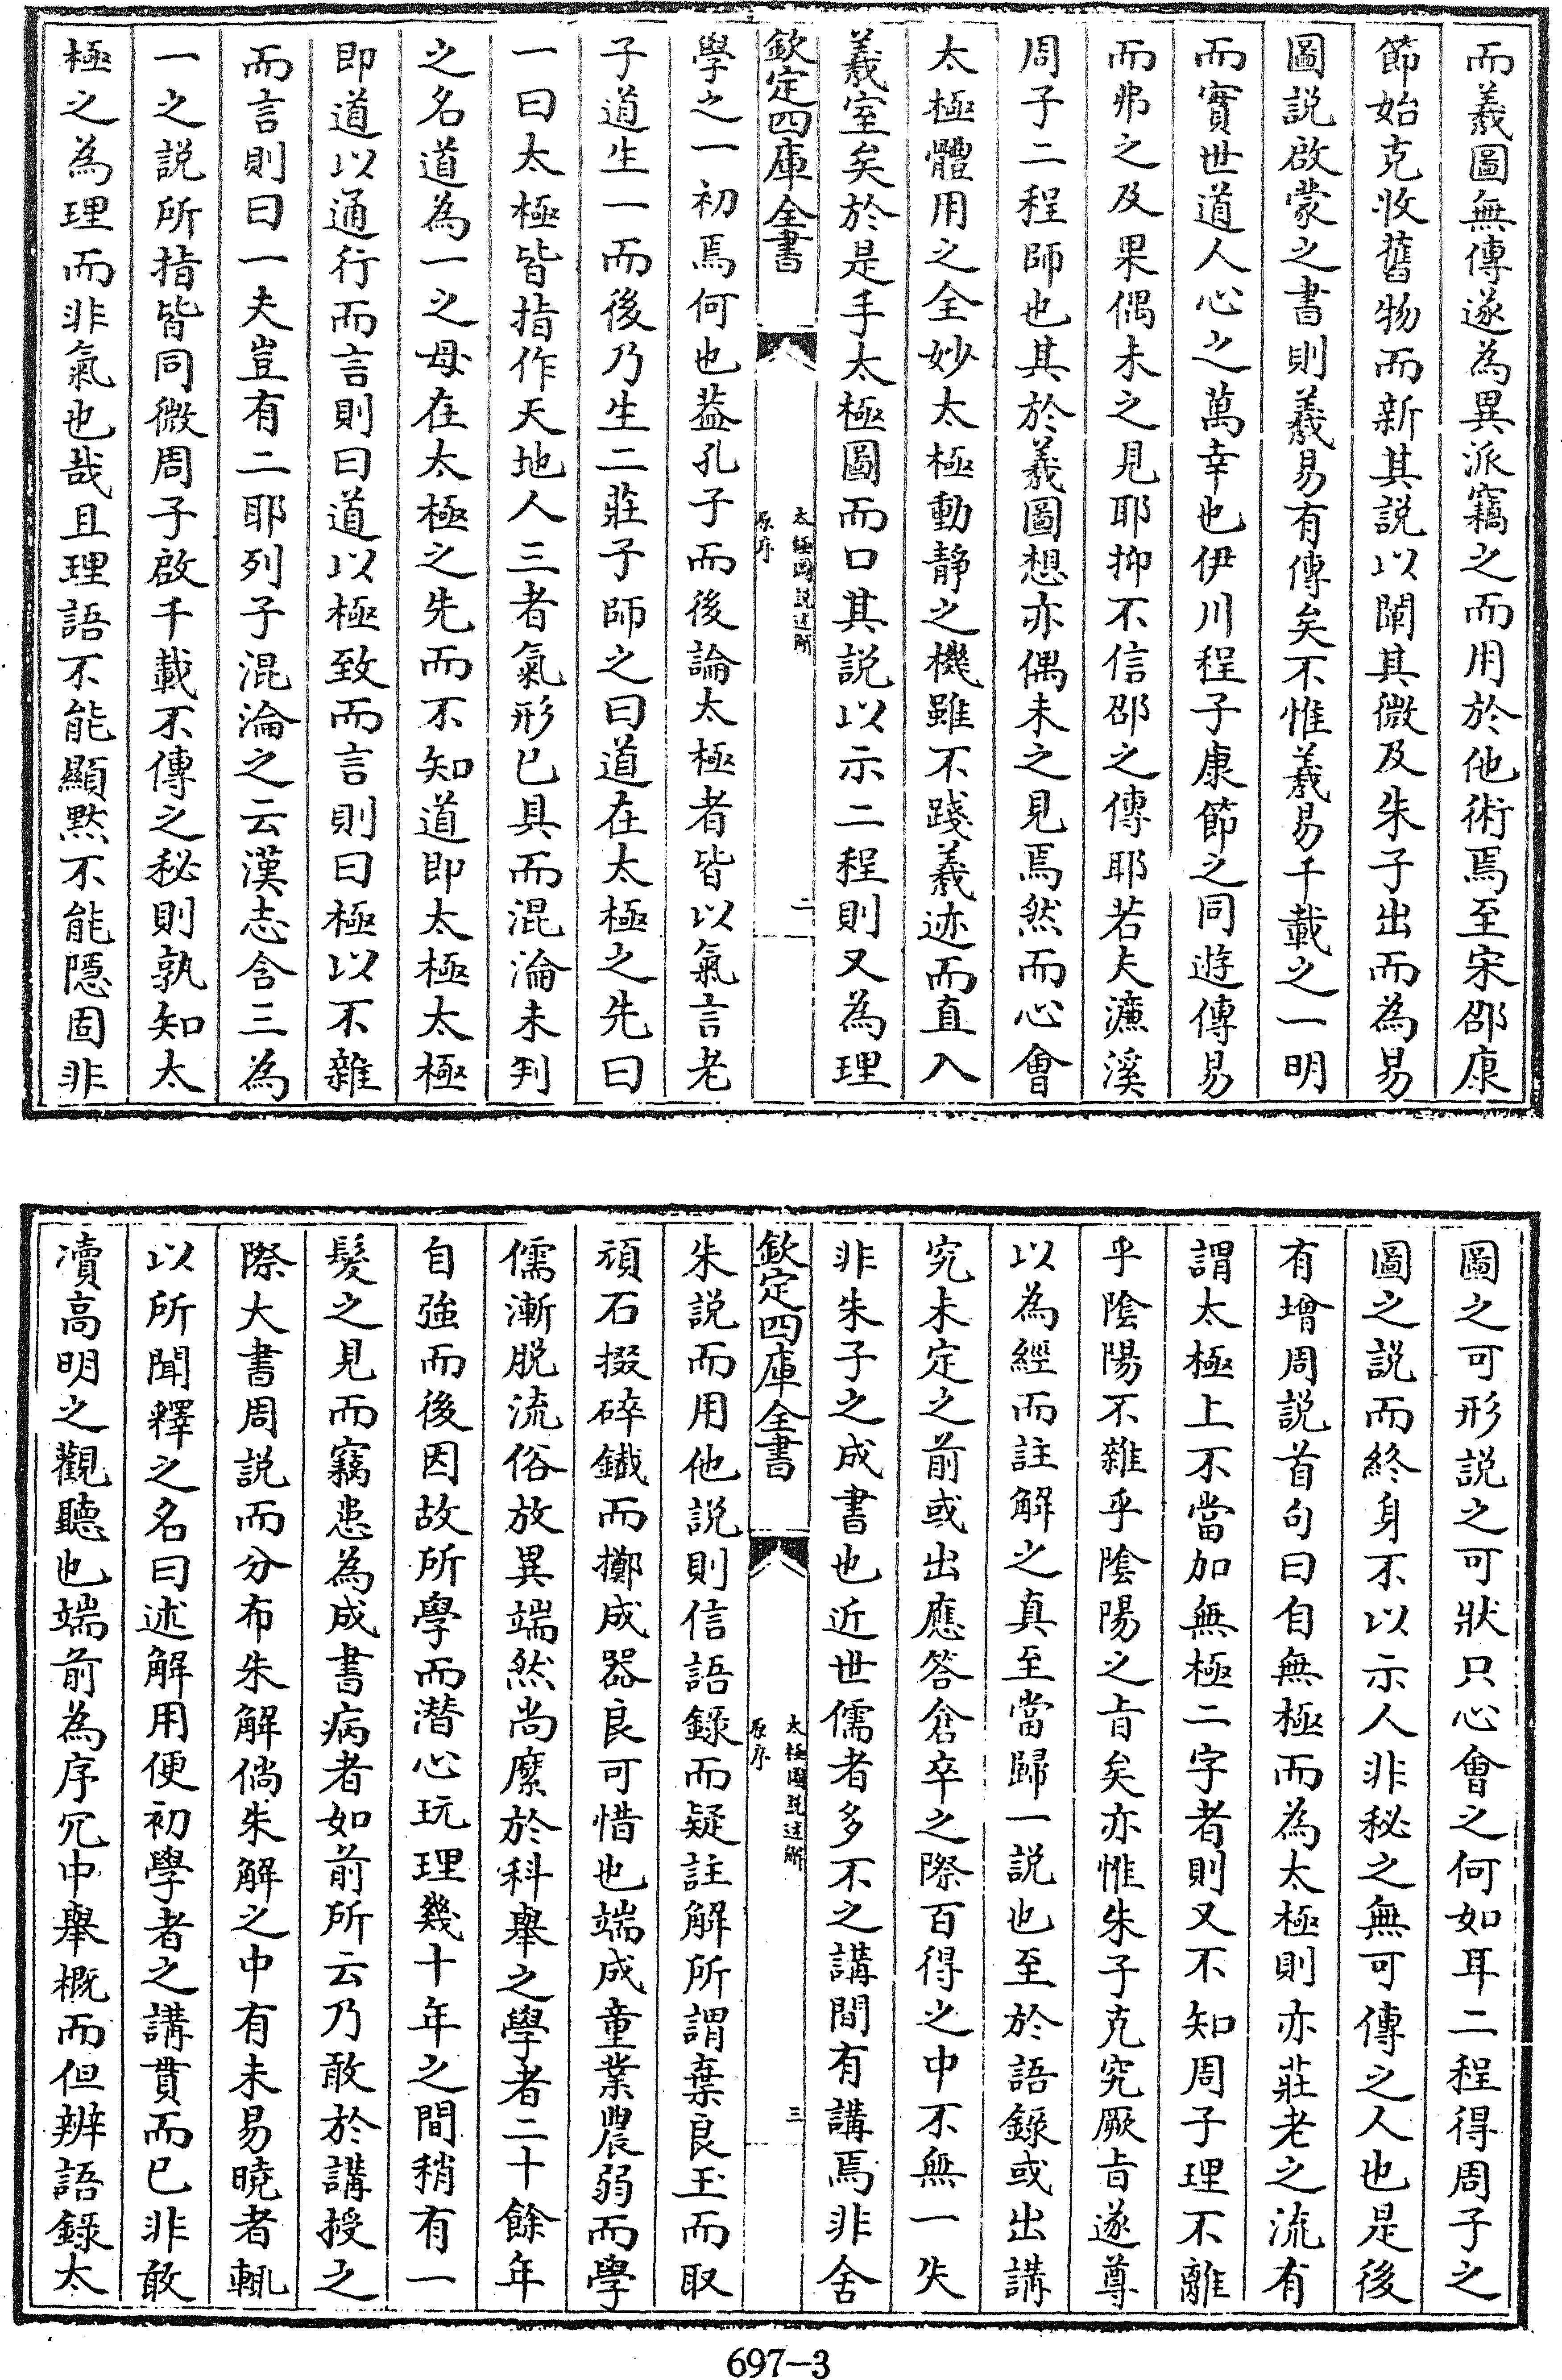 而羲圖無傳遂為異派竊之而用於他術焉至宋邵康
節始克收舊物而新其説以闡其微及朱子出而為易
圖説啟蒙之書則羲易有傳矣不惟羲易千載之一明
而實世道人心之萬幸也伊川程子康節之同遊傳易
而弗之及果偶未之見耶抑不信邵之傳耶若夫濂溪
周子二程師也其於羲圖想亦偶未之見焉然而心會
太極體用之全妙太極動靜之機雖不踐羲迹而直入
羲室矣於是手太極圖而口其説以示二程則又為理
欽定四庫全書
太極圖説述解
原序
二
學之一初焉何也葢孔子而後論太極者皆以氣言老
子道生一而後乃生二莊子師之曰道在太極之先曰
一曰太極皆指作天地人三者氣形已具而混淪未判
之名道為一之母在太極之先而不知道即太極太極
即道以通行而言則曰道以極致而言則曰極以不雜
而言則曰一夫豈有二耶列子混淪之云漢志含三為
一之説所指皆同微周子啟千載不傳之秘則孰知太
極之為理而非氣也哉且理語不能顯黙不能隱固非
圖之可形説之可狀只心會之何如耳二程得周子之
圖之説而終身不以示人非秘之無可傳之人也是後
有增周説首句曰自無極而為太極則亦莊老之流有
謂太極上不當加無極二字者則又不知周子理不離
乎陰陽不雜乎陰陽之㫖矣亦惟朱子克究厥㫖遂尊
以為經而註解之真至當歸一説也至於語錄或出講
究未定之前或出應答倉卒之際百得之中不無一失
非朱子之成書也近世儒者多不之講間有講焉非舍
欽定四庫全書
太極圖説述解
原序
三
朱説而用他説則信語錄而疑註解所謂棄良玉而取
頑石掇碎鐵而擲成器良可惜也端成童業農弱而學
儒漸脱流俗放異端然尚縻於科舉之學者二十餘年
自強而後因故所學而潜心玩理幾十年之間稍有一
髮之見而竊患為成書病者如前所云乃敢於講授之
際大書周説而分布朱解倘朱解之中有未易曉者輒
以所聞釋之名曰述解用便初學者之講貫而已非敢
凟高明之觀聽也端前為序冗中舉概而但辨語錄太
697-3